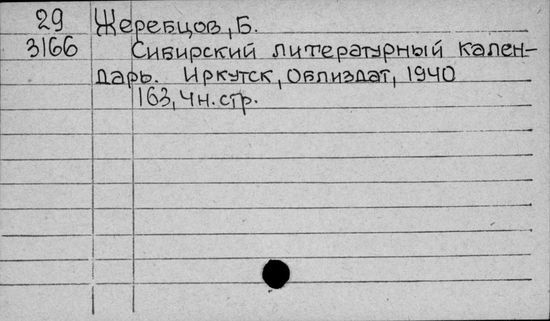 29 Жеребцов, Б.
3166 Сибирский литературный кален-
дарь. Иркутск, Облиздат, 1940
163, 4н. стр.